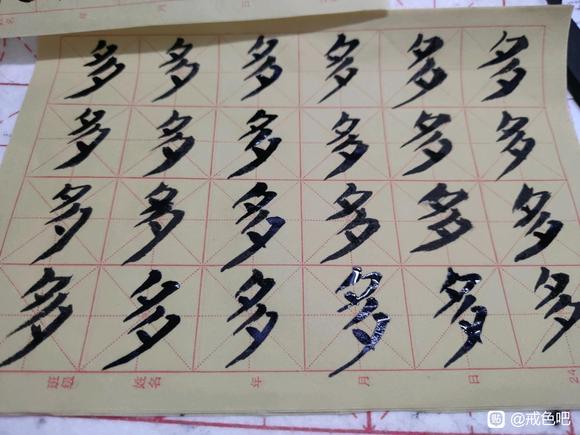 姓名 月 日
多 多 多 多 多 多
多 多 多 多 多 多
多 多 多 多 多 多
多 多 多 多 多 多
班级 姓名 年 月 日 24
贴 @戒色吧